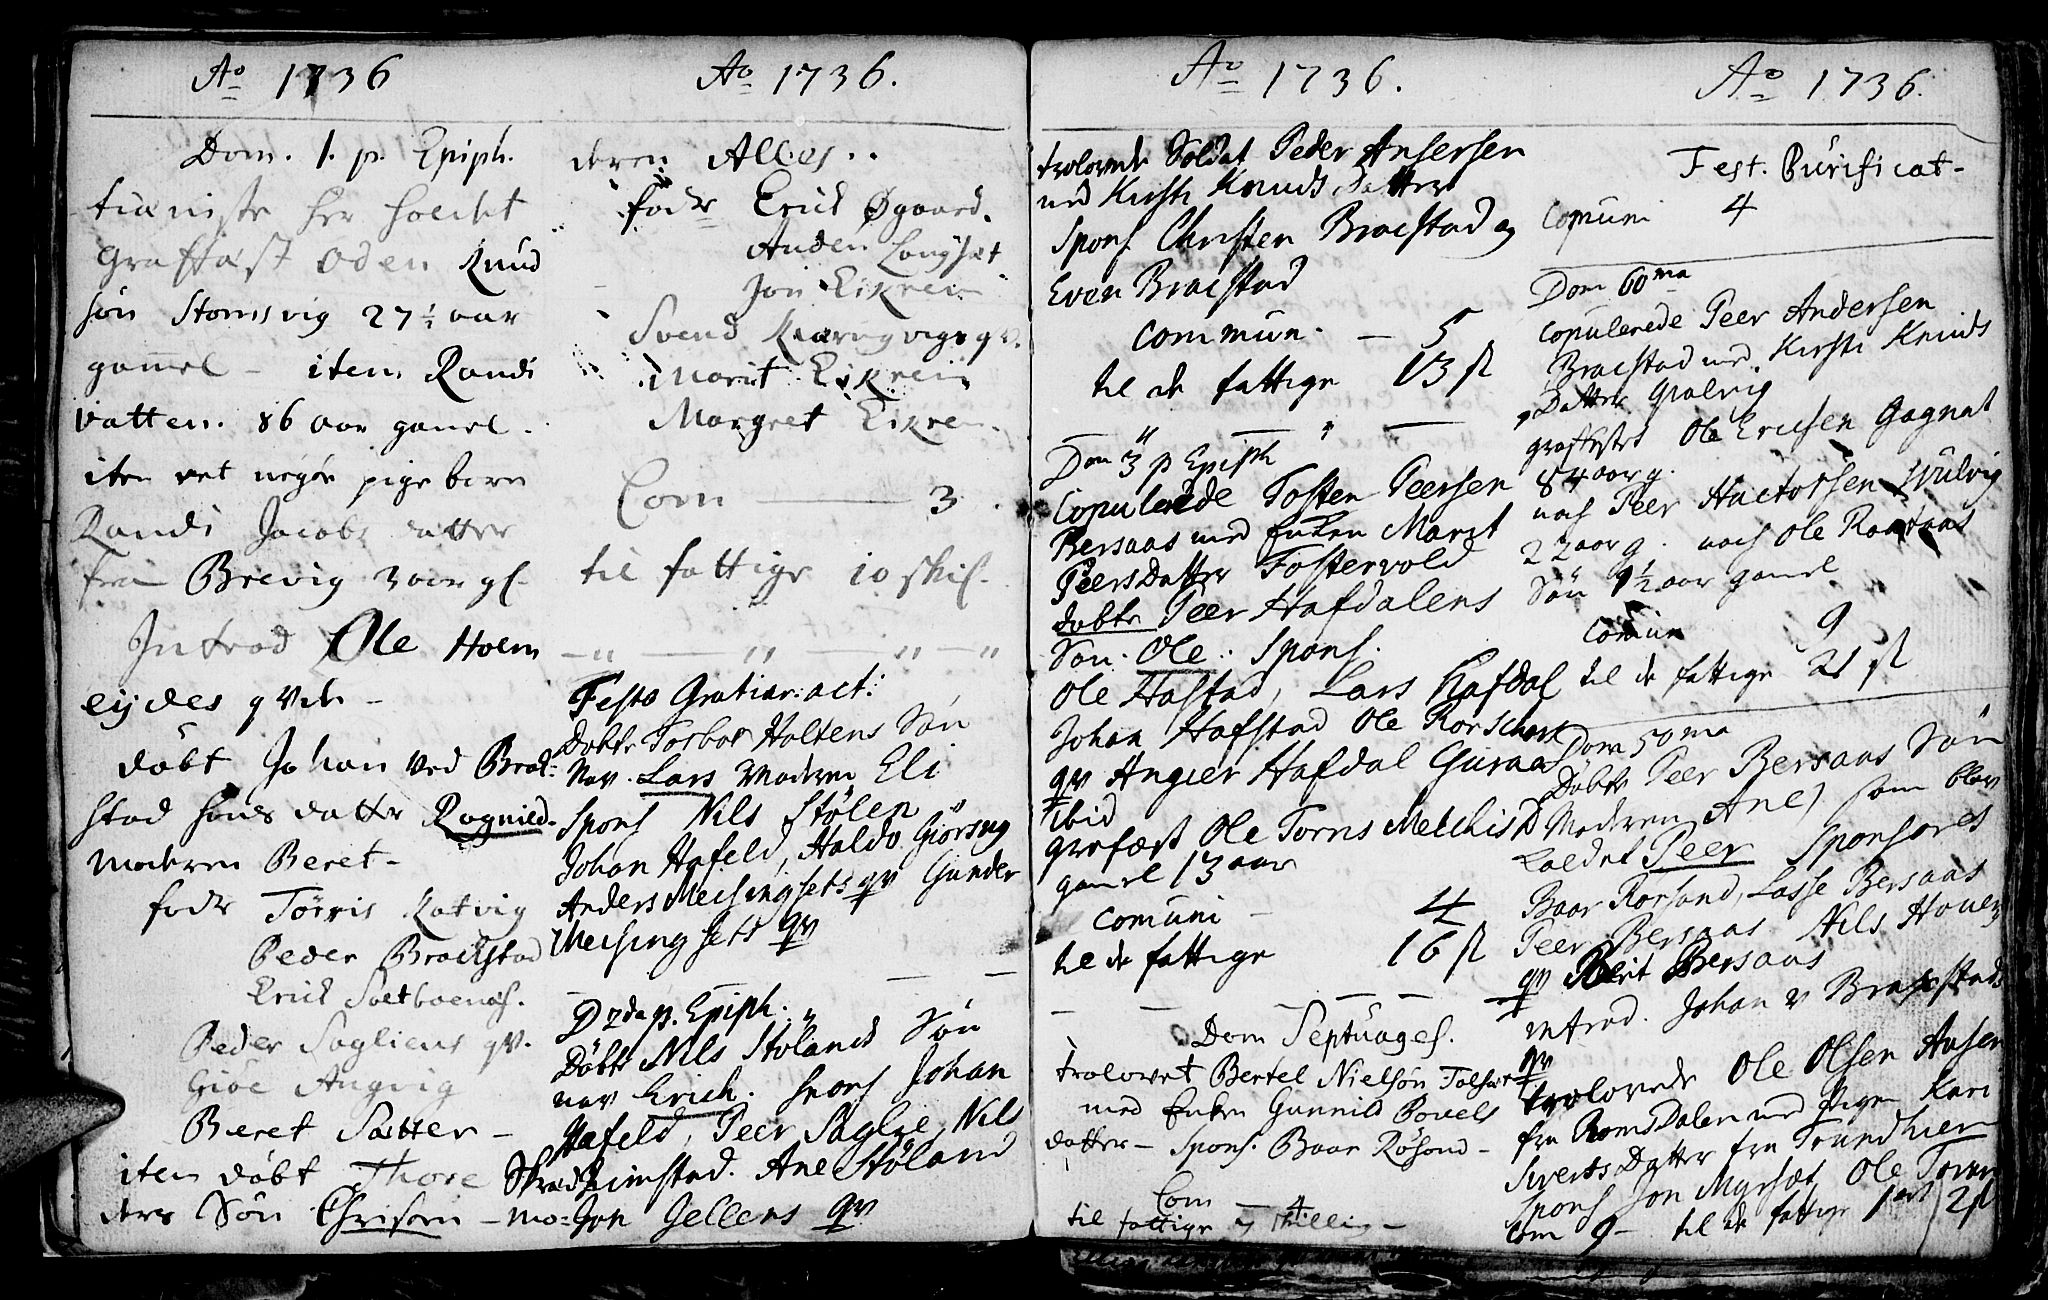 Ao 1736
Dom. 1. p. Epiph.
her holdet
Graffæst Oden Knud
søn Stomsvig 27 1/2 aar
gamel - item Randi
Vatten. 86 aar gamel.
item et pige barn
Randi Jacobs datter
fra Brevig 3 aar gl.
Introd Ole Holm
eydes qvde -
døbt Johan ved Brek-
stad hans datter Ragnild.
moderen Beret -
fadr Tørris Ratvig
Peder Braekstad
Erick
Peder Sagliens qv.
Giøe Angvig
Beret Sætter -
item døbt Thore
ders Søn Christen - mo-
Ao 1736.
deren Alles..
fadr Erick Øgaard.
Anden Langset
Jon Eikrem
Svend qv.
Marit Eikrem
Margret Eikrem.
Com — 3.
til fattige 10 skil.
Festo Gratiar: act:
Døbte Torbør Holtens Søn
Nav. Lars Moderen Eli
Spons Nils Stølen
Johan Hafeld, Haldo Giørsvg
Anders Meisingsets qv Gunder
Meisingsets qv
D 2da p. Epiph.
Døbt Nils Stolands Søn
nav Erich. Spons Johan
Hafeld, Peer Saglie, Nils
Rimstad. Ane Støland
Jon Gellens qv
Ao 1736.
trolovede Soldat Peder Ansersen
med Kirsti Knuds datter
Spons Christen Braestad og
Even Braestad
Commun. — 5
til de fattige 13 sl
Dom 3 p Epiph
Copulerede Tosten Peersen
Bersaas med Enken Marit
Peersdatter Fostervold
døbte Peer Hafdalens
Søn. Ole. Spons.
Ole Hafstad, Lars Hafdal
Johan Hafstad Ole
qv Angier Hafdal Guraas
ibid
grefæst Ole Torns
gamel 13 aar
Comuni - 4
til de fattige 16 sl
Dom Septuages.
trolovet Bertel Nielsøn
med Enken Gunnild Povels
datter - Spons. Baar Røsand -
Com — 4
til fattige 7 skilling -
Ao 1736.
Fest. Purificat-
Comuni 4
Dom 60ma
Copulerede Peer Andersen
Braestad med Kirsti Knuds
Datter
grafæstet Ole Ericsen Gagnat
84 aar g.
noch Peer
22 aar g. noch Ole
Søn 9 1/2 aar gamel
Comun 9
til de fattige 21 sl
Dom 50ma
Døbte Peer Bersaas Søn
Moderen Ane) som blev
kaldet Peer Sponsores
Baar Rorsand, Lasse Bersaas
Peer Bersaas Nils Hoven
qv Berit Bersaas
introd. Johan v Brekstads
qv
trolovede Ole Olsen Ansen
fra Romsdalen med Pigen Kari
Siverts Datter fra Trundhiem
Spons Jon Myrset, Ole
Com 9 - til de fattige 1 ort 2 sl